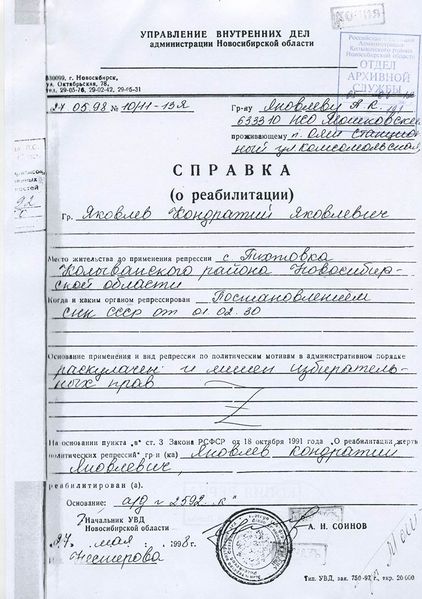 КОПИЯ
УПРАВЛЕНИЕ ВНУТРЕННИХ ДЕЛ
администрации Новосибирской области
Российская Федерация
Администрация
Колыванского района
Новосибирской области
ОТДЕЛ
АРХИВНОЙ
СЛУЖБЫ
630099, г. Новосибирск,
ул. Октябрьская, 78,
тел. 29-05-76, 29-02-42, 29-05-31
27.05.98 № 10/11-
Гр-ну Яковлеву А.К.
633310 НСО Мошковский
проживающему п.
ный ул Комсомольская
СПРАВКА
(о реабилитации)
Гр. Яковлев Кондратий Яковлевич
Место жительства до применения репрессии с. Пихтовка
Колыванского района Новосибир-
ской области
Когда и каким органом репрессирован Постановлением
СНК СССР от 01.02.30
Основание применения и вид репрессии по политическим мотивам в административном порядке
раскулачен и лишен избиратель-
ных прав
На основании пункта „в" ст. 3 Закона РСФСР от 18 октября 1991 года „О реабилитации жертв
политических репрессий" гр-н (ка) Яковлев Кондратий
Яковлевич,
реабилитирован (а).
Основание: а/д № 2592 „к"
Начальник УВД
Новосибирской области
А. Н. СОИНОВ
27. мая 1998 г.
Нестерова
Тип. УВД, зак. 750-97 г., тир. 20 000